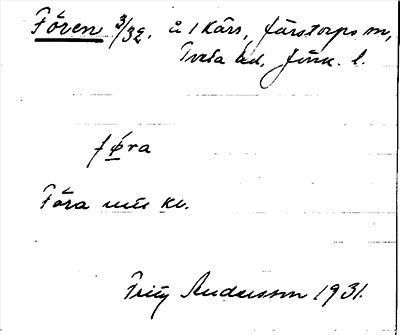 Fören 3/32. å 1 Kårs, Järstorps sn,
Tveta hd, Jönk. l.
føra
Föra
Andersson 1931.